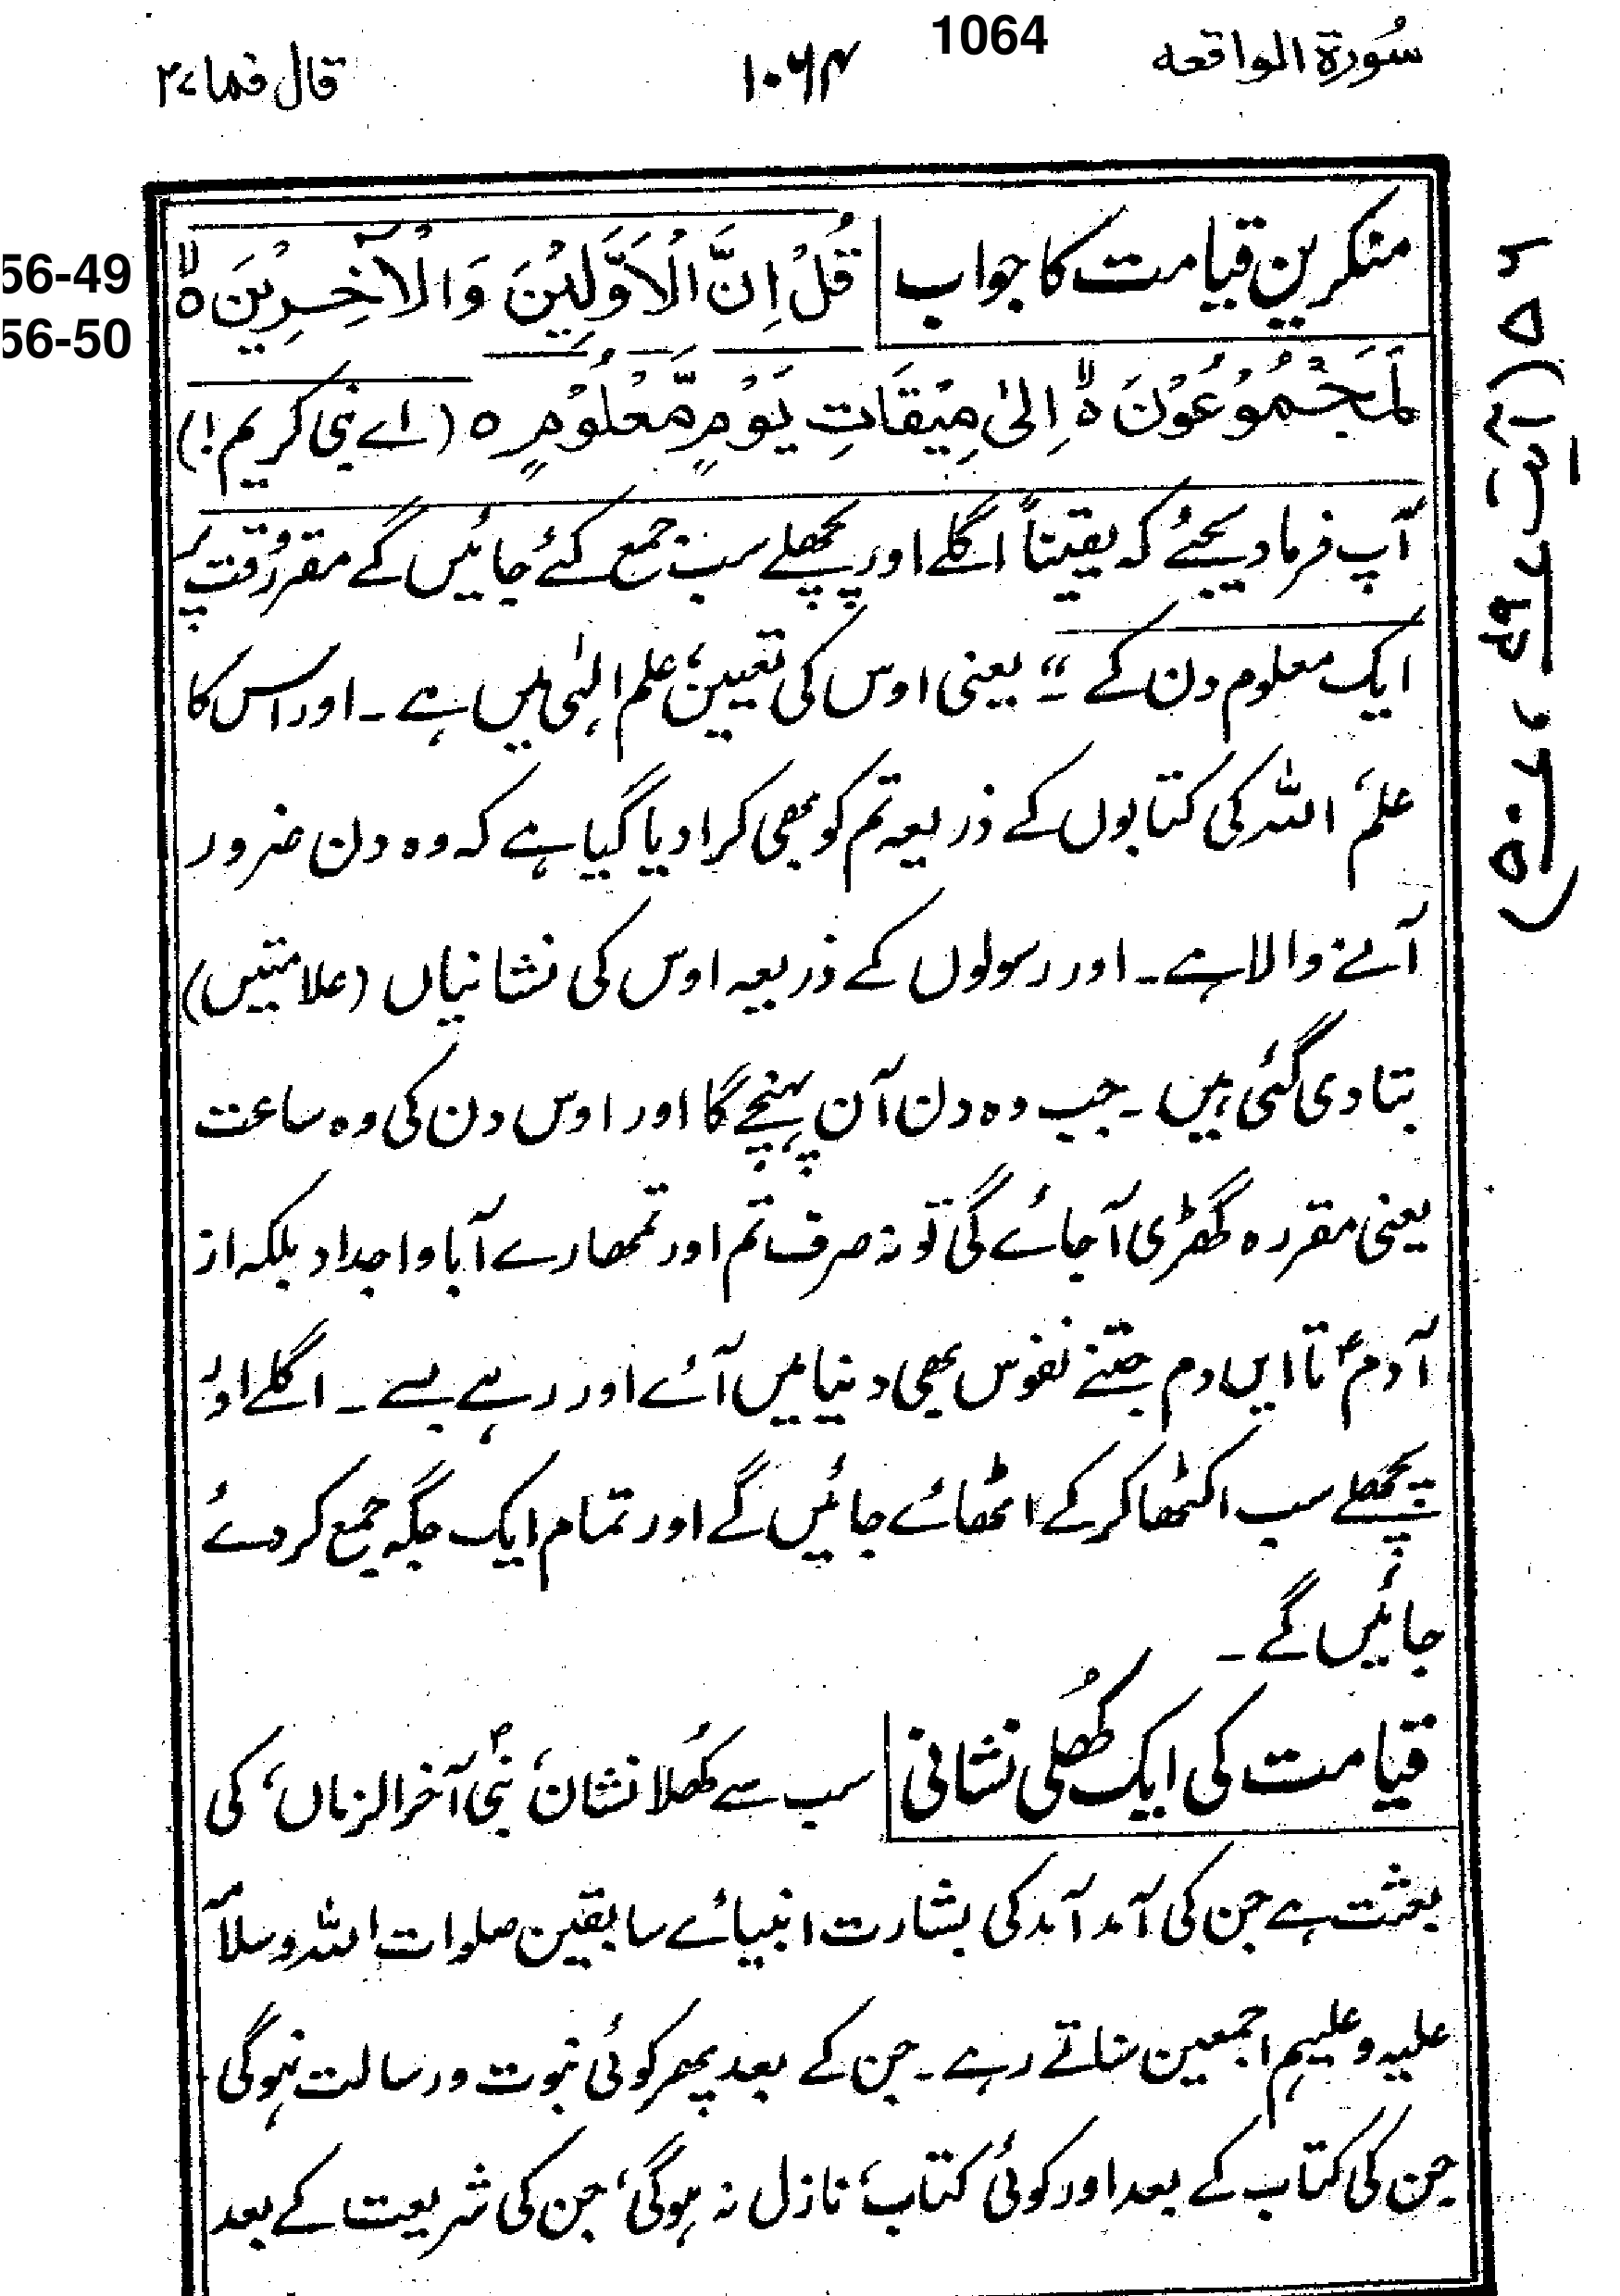 سُورۃ الواقعہ 1064 ۱۰۶۴ قال فما ۲۷
منکرین قیامت کا جواب قُلْ اِنَّ الْاَوَّلِیْنَ وَالْاٰخِرِیْنَ ہ
56-49
56-50
لَمَجْمُوْعُوْنَ ہ اِلٰی مِیْقَاتِ یَوْمٍ مَّعْلُوْمٍ ہ (اے نبی کریم!)
آپ فرما دیجئے کہ یقیناً اگلے اور پچھلے سب جمع کئے جائیں گے مقررُ وقت پر
ایک معلوم دن کے ۔" یعنی اوس کی تعیین، علم الٰہی میں ہے ۔ اور اس کا
علم، اللہ کی کتابوں کے ذریعہ تم کو بھی کرا دیا گیا ہے کہ وہ دن ضرور
آنے والا ہے ۔ اور رسولوں کے ذریعہ اوس کی نشانیاں (علامتیں)
بتا دی گئی ہیں ۔ جب وہ دن آن پہنچے گا اور اوس دن کی وہ ساعت
یعنی مقررہ گھڑی آ جائے گی تو نہ صرف تم اور تمھارے آبا و اجداد بلکہ از
آدمؑ تا ایں دم جتنے نفوس بھی دنیا میں آئے اور رہے بسے ۔ اگلے اور
پچھلے سب اکٹھا کر کے اٹھائے جائیں گے اور تمام ایک جگہ جمع کر دئے
جائیں گے ۔
قیامت کی ایک کھُلی نشانی سب سے کھُلا نشان، نبیؐ آخر الزماں، کی
بعثت ہے جن کی آمد آمد کی بشارت انبیائے سابقین صلوات اللہ و سلامٗ
علیہ و علیہم اجمعین سناتے رہے ۔ جن کے بعد پھر کوئی نبوت و رسالت نہوگی
جن کی کتاب کے بعد اور کوئی کتاب، نازل نہ ہوگی، جن کی شریعت کے بعد
۵۶ (آیت ۴۹، ۵۰)